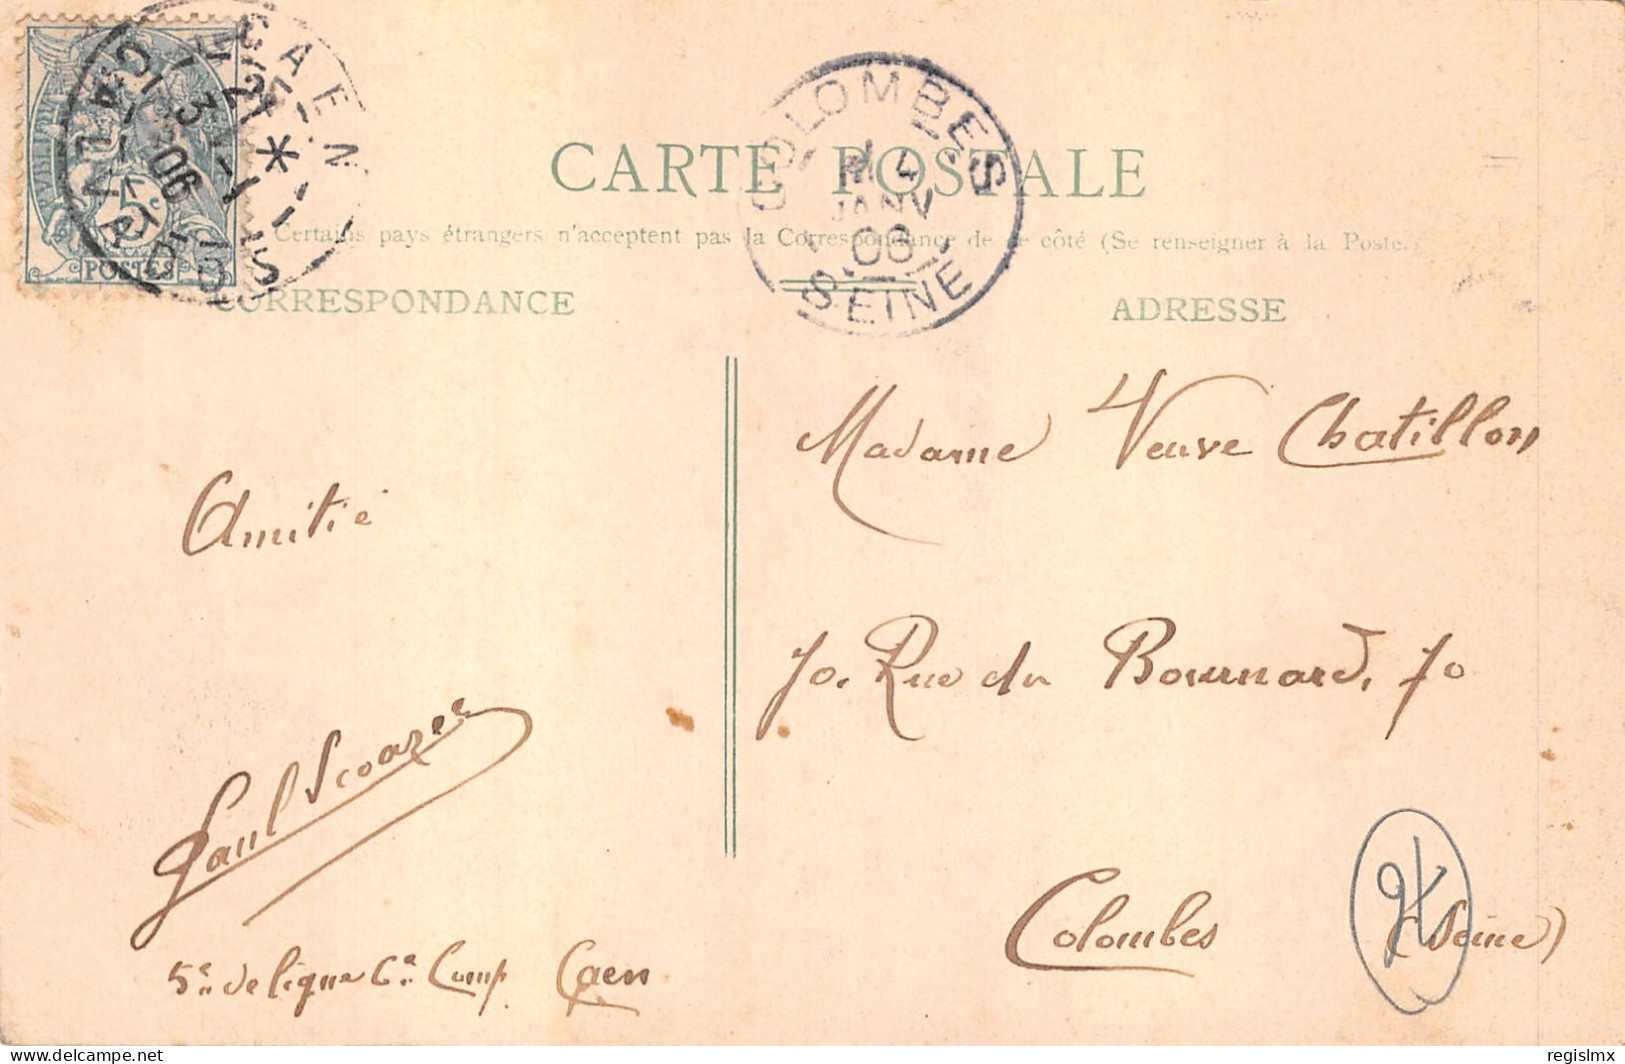 CAEN
CALVADOS
12
3 -1
06
5c
POSTES
COLOMBES
M 4
JANV
06
SEINE
CARTE POSTALE
Certains pays étrangers n'acceptent pas la Correspondance de ce côté (Se renseigner à la Poste.)
CORRESPONDANCE
ADRESSE
Amitié
Paul
5e de ligne 6e Comp Caen
Madame Veuve Chatillon
70. Rue du Bournard, 70
Colombes (Seine)
www.delcampe.net
regislmx